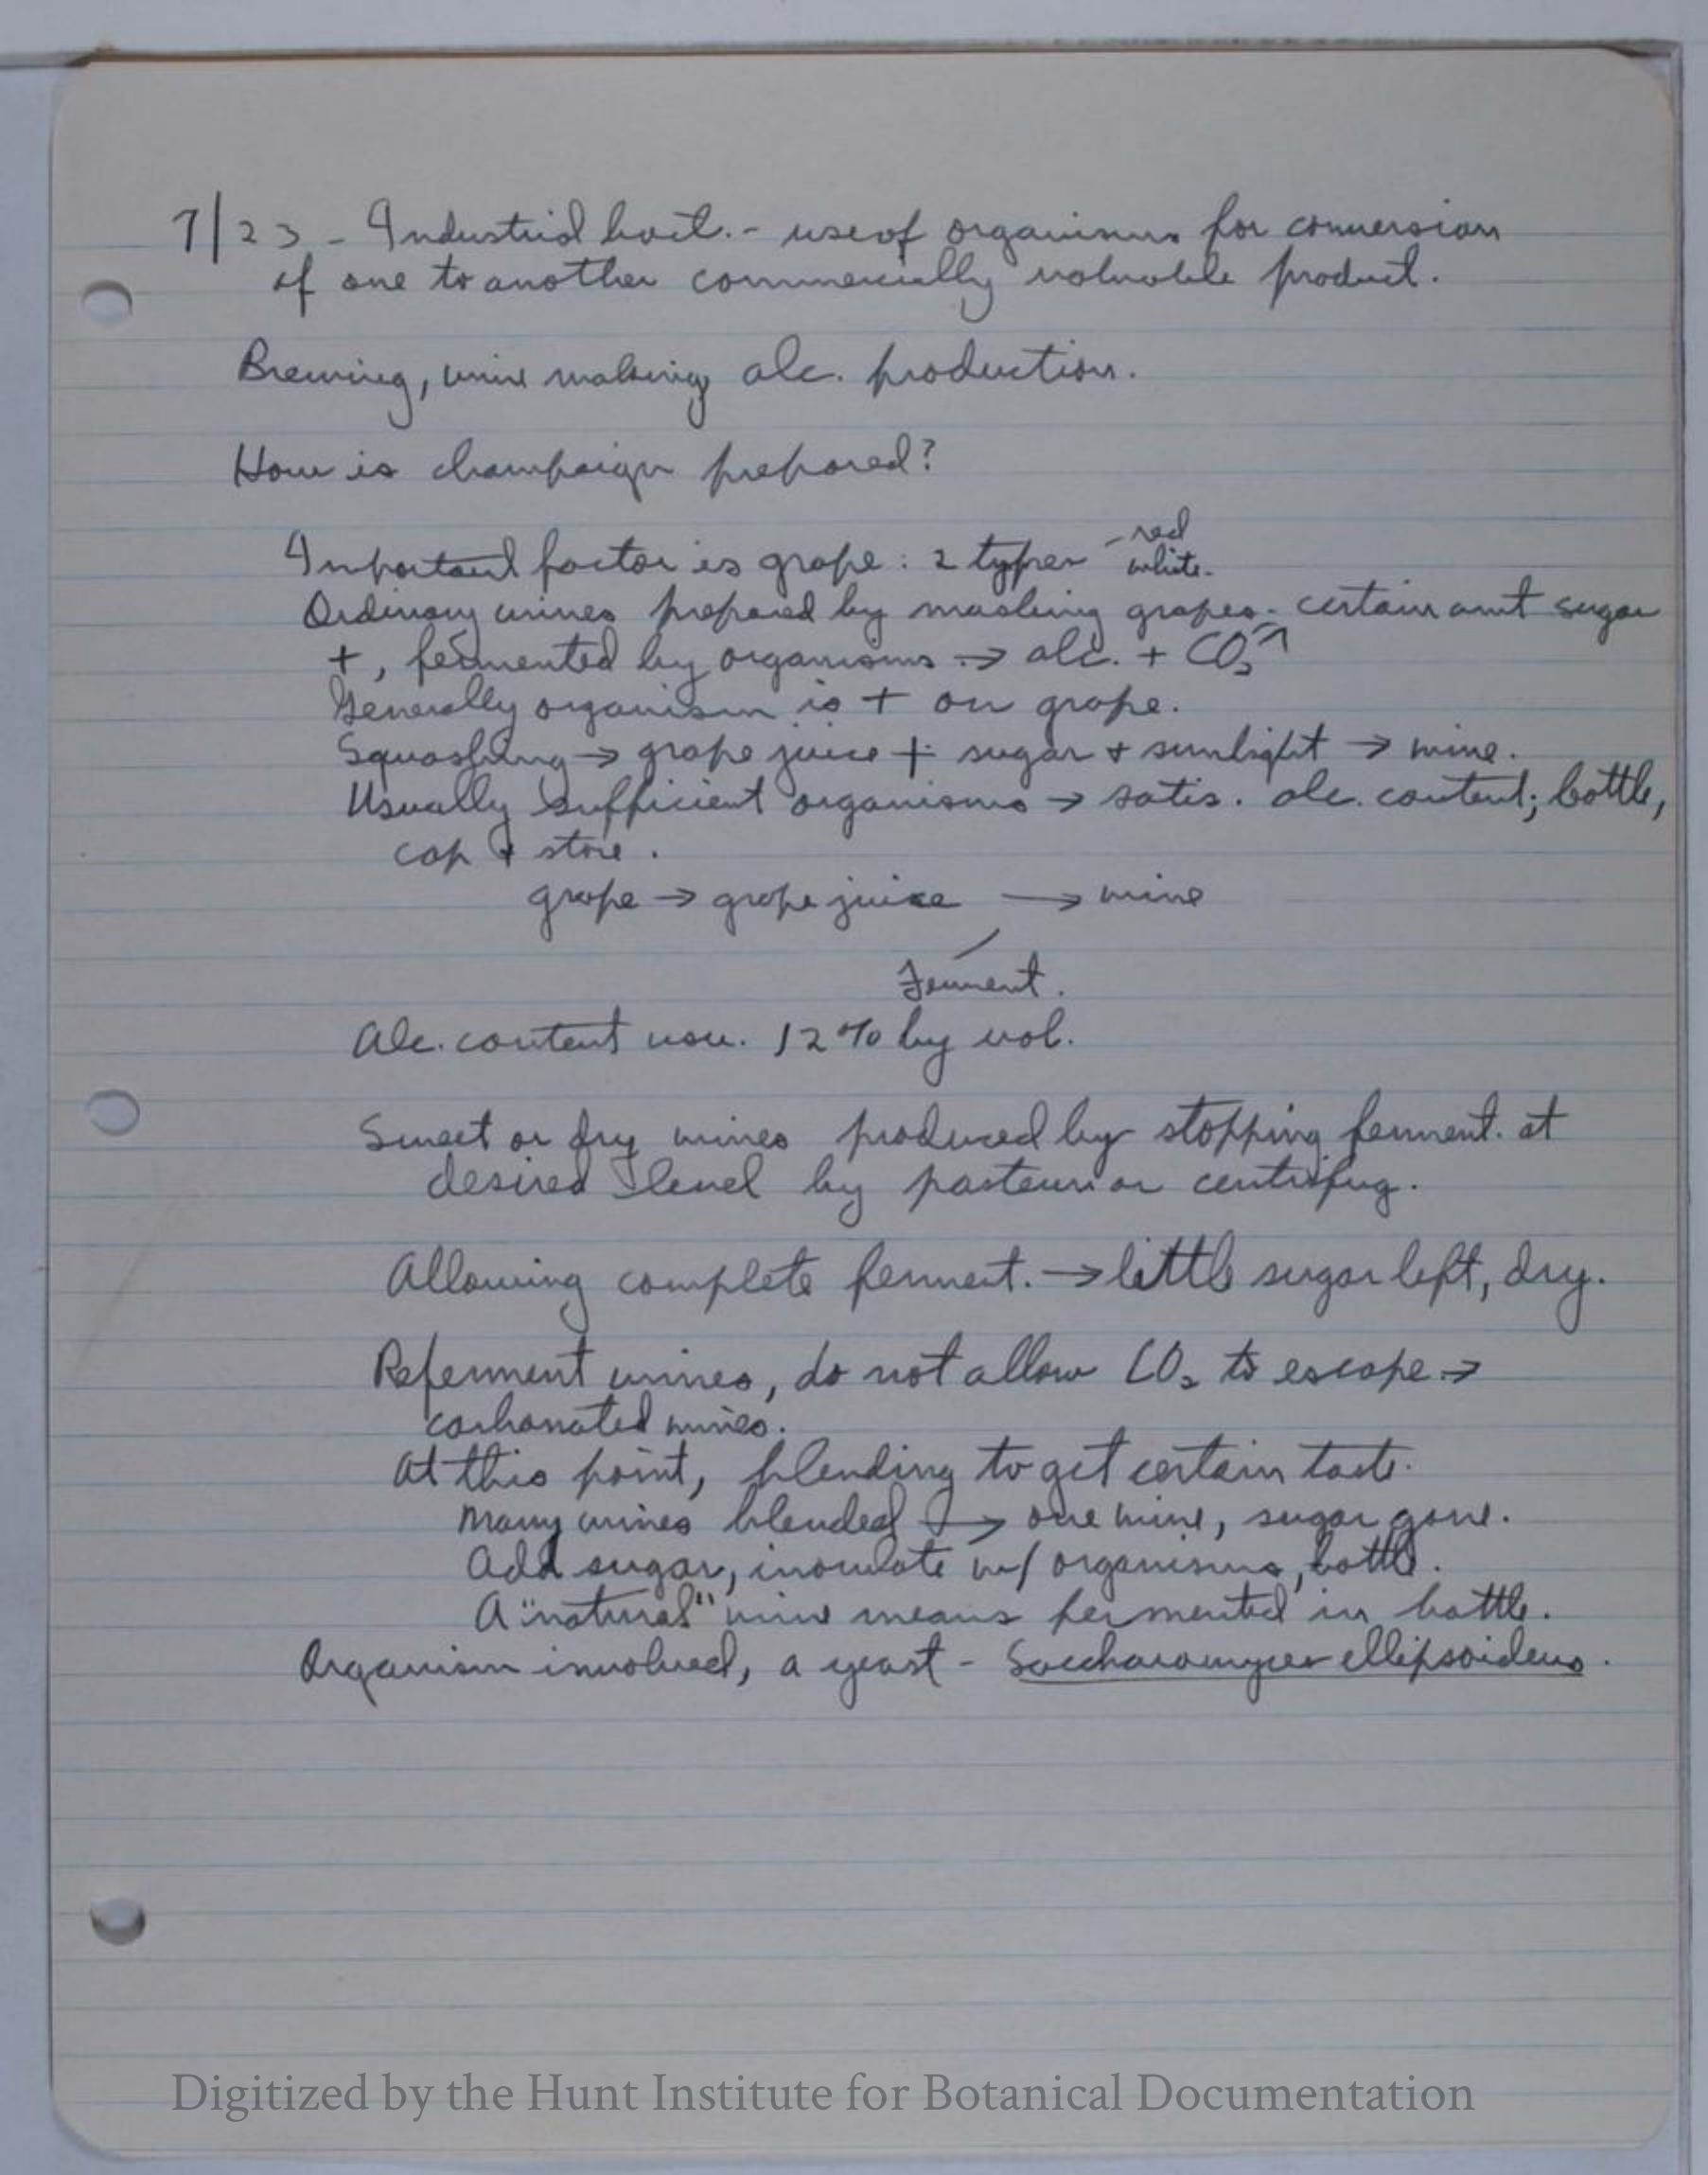 7/23 - Industrial bact. - use of organisms for conversion
of one to another commercially valuable product.
Brewing, wine making alc. production.
How is champaign prepared?
Important factor is grape: 2 types - red
white.
Ordinary wines prepared by mashing grapes - certain amt sugar
+, fermented by organisms → alc. + CO2↗
Generally organism is + on grape.
Squashing → grape juice + sugar + sunlight → wine.
Usually sufficient organisms → satis. alc. content; bottle,
cap + store.
grape → grape juice → wine
Ferment.
Alc. content usu. 12% by vol.
Sweet or dry wines produced by stopping ferment. at
desired level by pasteuri or centrifug.
Allowing complete ferment. → little sugar left, dry.
Referment wines, do not allow CO2 to escape →
carbonated wines.
At this point, blending to get certain taste.
Many wines blended → one wine, sugar gone.
Add sugar, inoculate w/ organisms, bottle.
A "natural" wine means fermented in bottle.
Organism involved, a yeast - Saccharomyces ellipsoideus.
Digitized by the Hunt Institute for Botanical Documentation